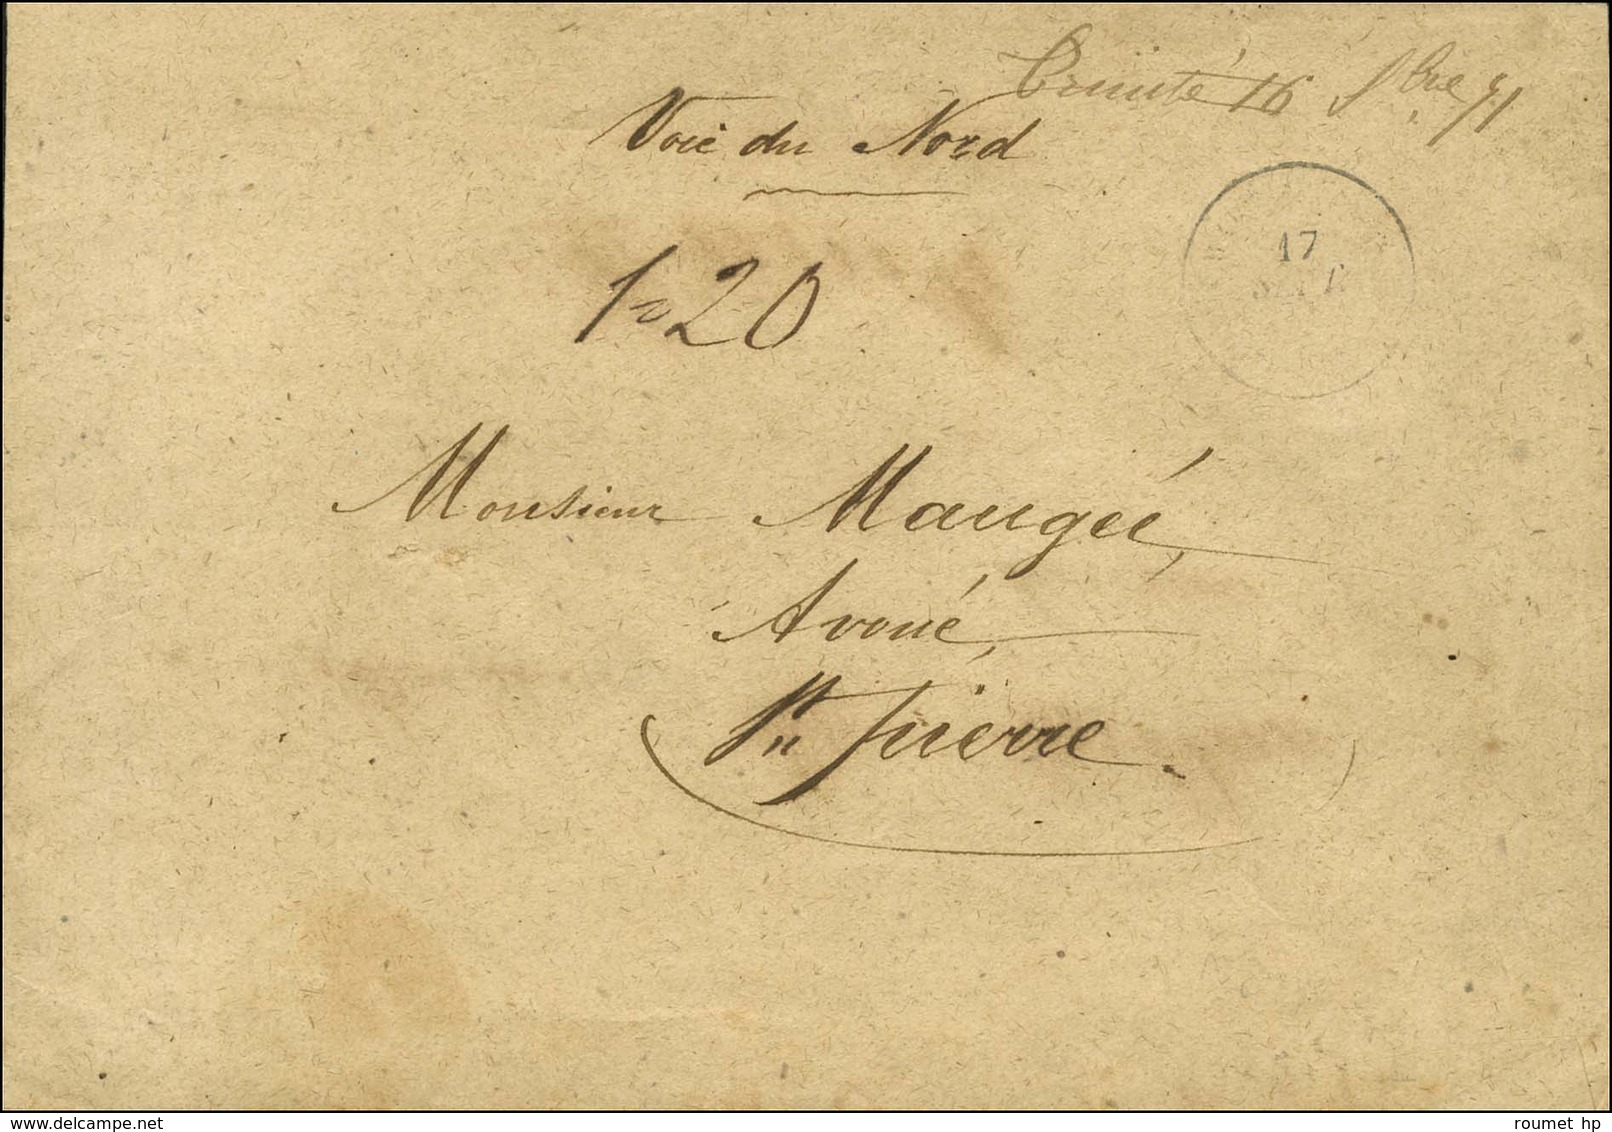 Trinité 16 Sbre 71
Voie du Nord
17
SEPT.
1 20
Monsieur Maugeé,
Avoué,
St Pierre.
delcampe.net
roumet hp